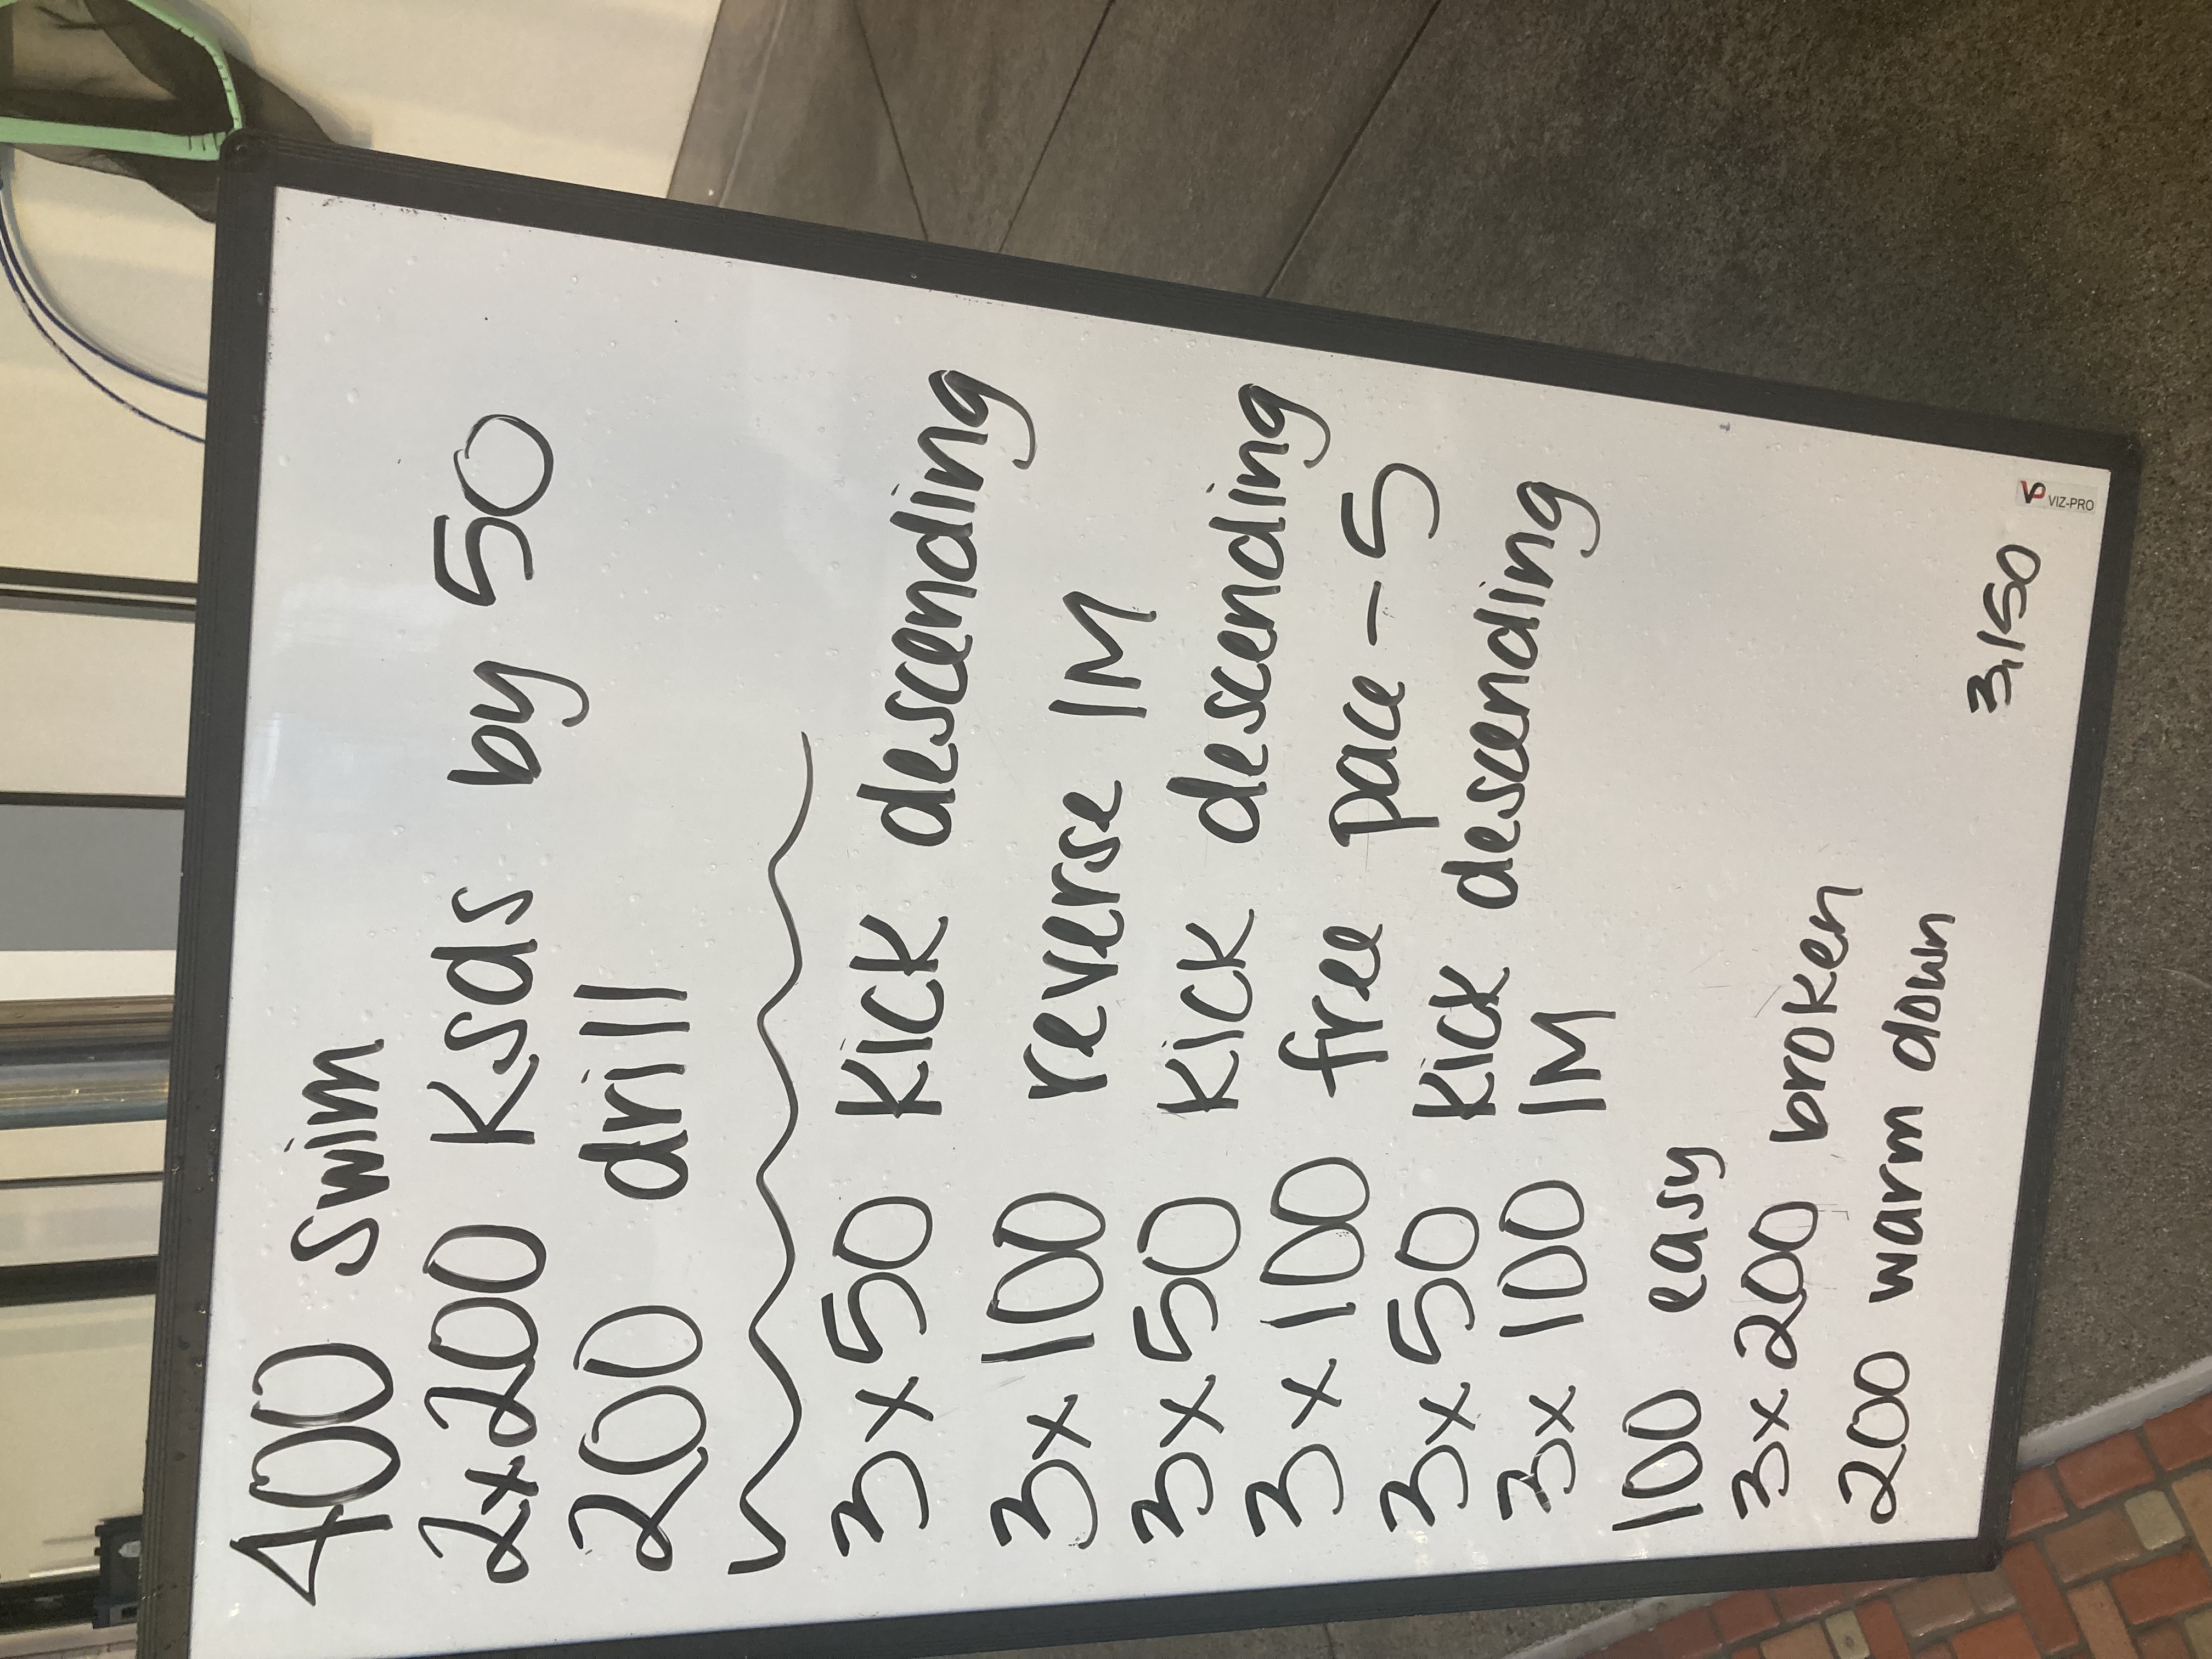 400 swim
2x200 Ksds by 50
200 drill
3x50 Kick descending
3x100 reverse IM
3x50 Kick descending
3x100 free pace -5
3x50 Kick descending
3x100 IM
100 easy
3x200 broken
200 warm down
3,150
VP VIZ-PRO